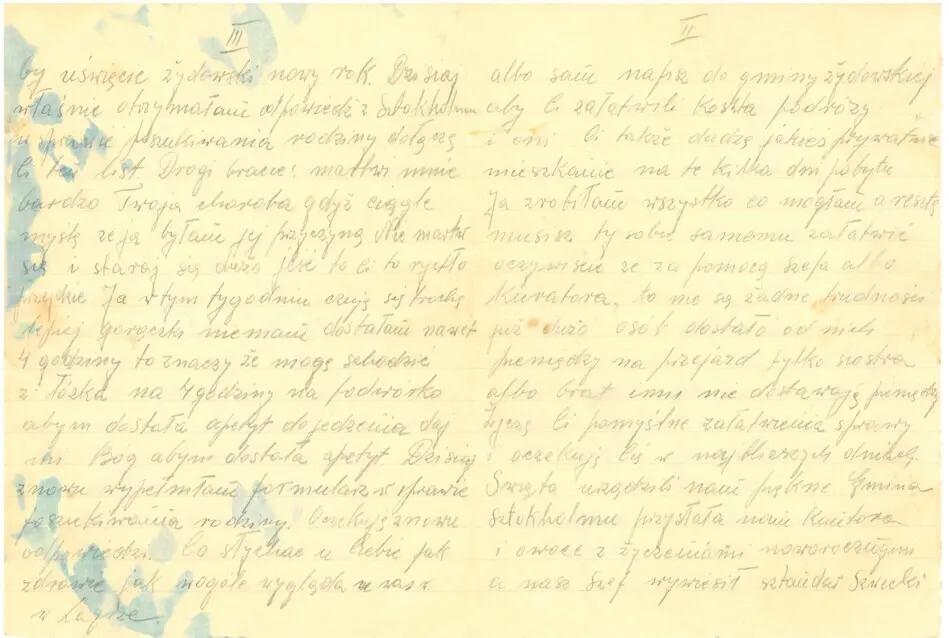 II
albo sam napisz do gminy żydowskiej
aby Ci załatwili koszta podróży
i oni Ci także dadzą jakieś prywatne
mieszkanie na te kilka dni pobytu
Ja zrobiłam wszystko co mogłam a resztę
musisz ty sobie samemu załatwić
oczywiście ze za pomocą szefa albo
Kuratora, to nie są żadne trudności
już dużo osób dostało od nich
pieniędzy na przejazd tylko siostra
albo brat inni nie dostawają pieniędzy
Życzę Ci pomyślne załatwienia sprawy
i oczekuję Cię w najbliższych dniach.
Święta urządzili nam piękne Gmina
Sztokholmu przysłała nam Kantora
i owoce z życzeniami noworocznymi
a nasz Szef wywiesił sztandar Szwecki
III
by uświęcić żydowski nowy rok. Dzisiaj
właśnie otrzymałam odpowiedź z Sztokholmu
w sprawie poszukiwania rodziny dołączę
Ci ten list. Drogi bracie! martwi mnie
bardzo Twoja choroba gdyż ciągle
myslę ze ja byłam jej przyczyną Nie martw
się i staraj się dużo jeść to Ci to rychło
przejdzie Ja w tym tygodniu czuję się trochę
lepiej gorączki niemam dostałam nawet
4 godziny to znaczy że mogę schodzić
z łóżka na 4 godziny na podwórko
abym dostała apetyt do jedzenia daj
mi Bog abym dostała apetyt Dzisiaj
znowu wypełniłam formularz w sprawie
poszukiwania rodziny. Oczekuję znowu
odpowiedzi. Co słychac u Ciebie jak
zdrowie jak wogóle wygląda u was
w Lagrze.